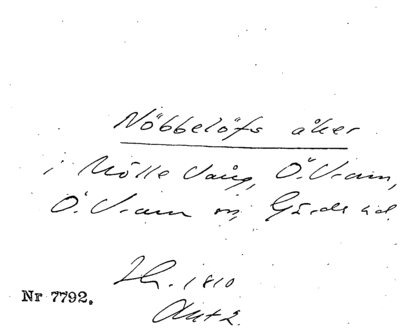 Nöbbelöfs åker
i Mölle Vång, Ö. Vram,
Ö. Vram sn, Gärds hd.
Lh. 1810
Akt 2.
Nr 7792.